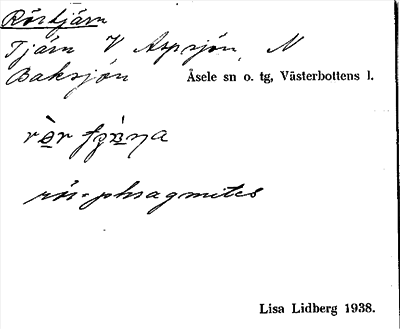 Rörtjärn
Tjärn V Aspsjön, N
Baksjön Åsele sn o. tg, Västerbottens l.
rör- phragmites
Lisa Lidberg 1938.